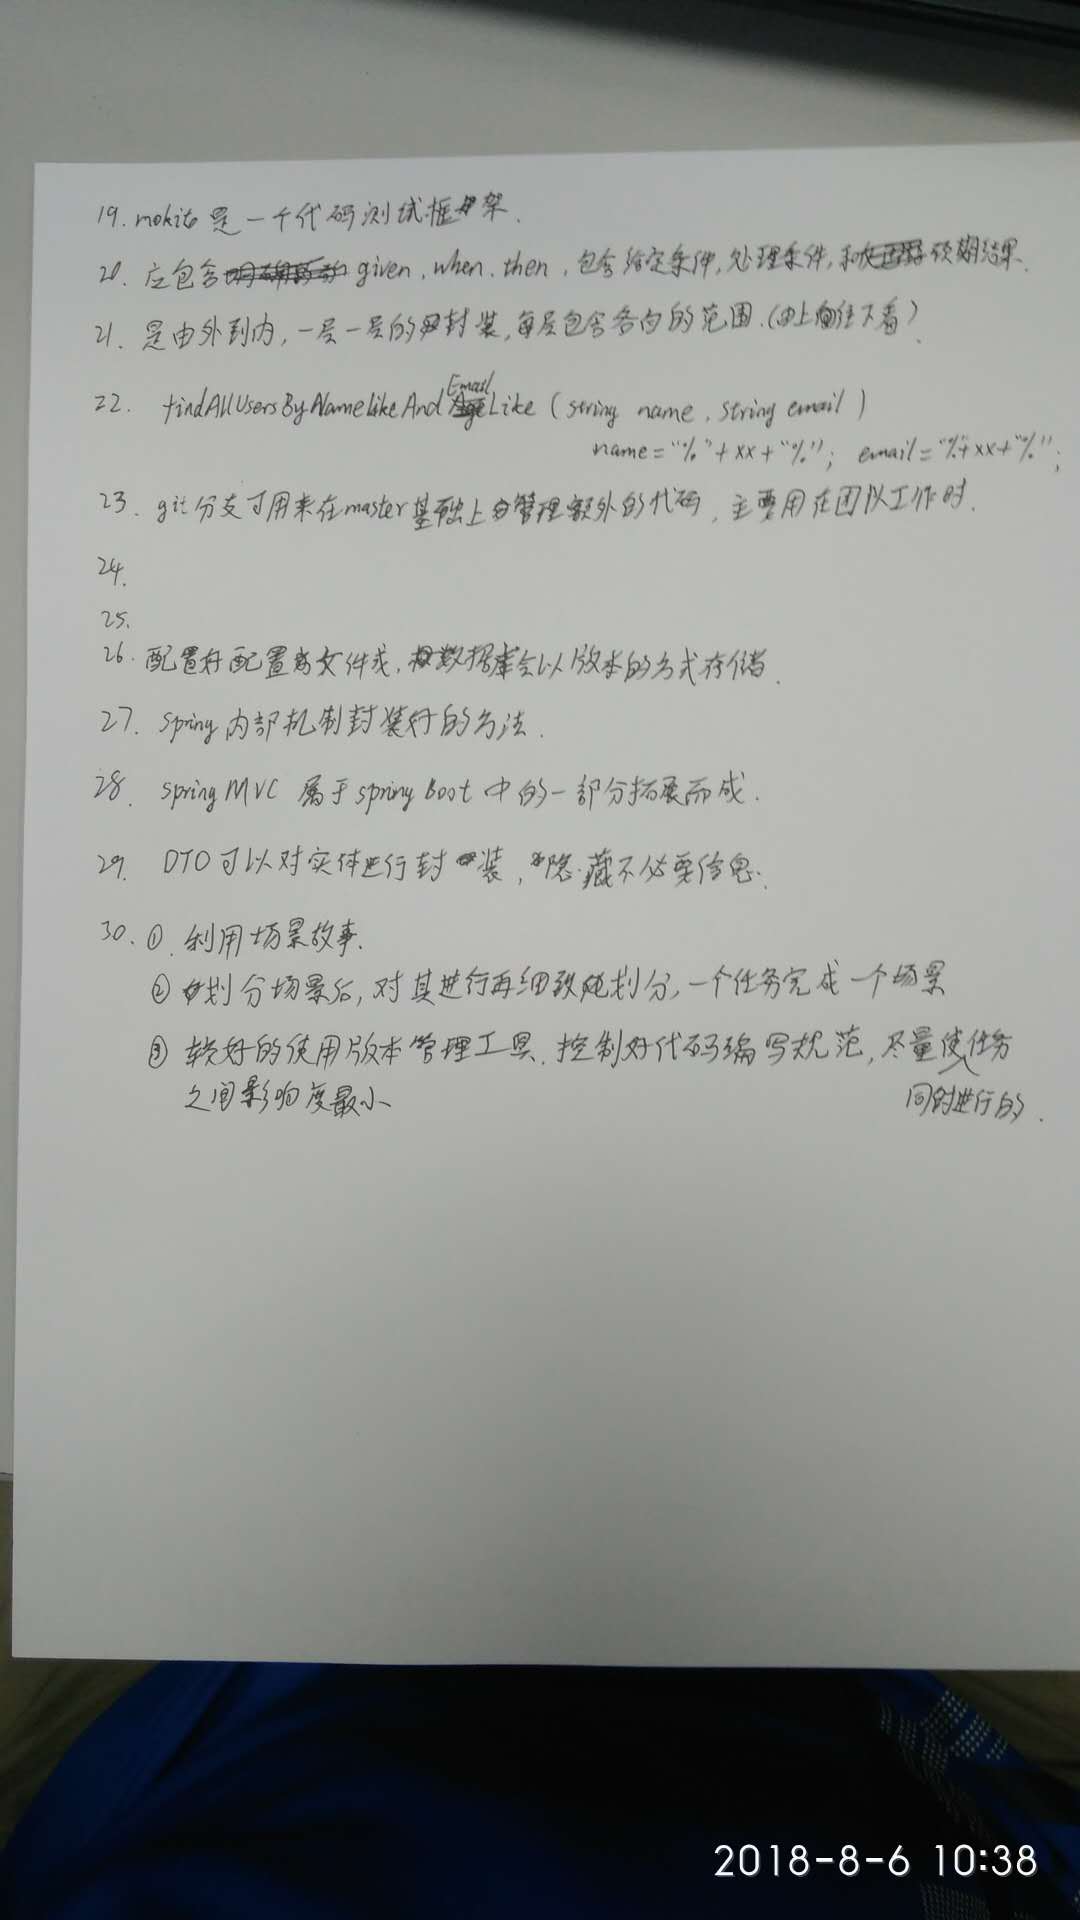 19. mokito是一个代码测试框架.
20. 应包含 given, when, then, 包含给定条件, 处理条件, 和预期结果.
21. 是由外到内, 一层一层的封装, 每层包含各自的范围. (由上往下看)
22. findAllUsersByNameLikeAndEmailLike (string name, string email)
name="%"+xx+"%"; email="%"+xx+"%";
23. git分支可用来在master基础上管理额外的代码, 主要用在团队工作时.
24.
25.
26. 配置好配置文件或, 数据库会以版本的方式存储.
27. spring内部机制封装好的方法.
28. spring MVC 属于spring Boot 中的一部分拓展而成.
29. DTO可以对实体进行封装, 隐藏不必要信息.
30. ①. 利用场景故事.
② 划分场景后, 对其进行再细致地划分, 一个任务完成一个场景
③ 较好的使用版本管理工具. 控制好代码编写规范, 尽量使同时进行的任务
之间影响度最小
2018-8-6 10:38